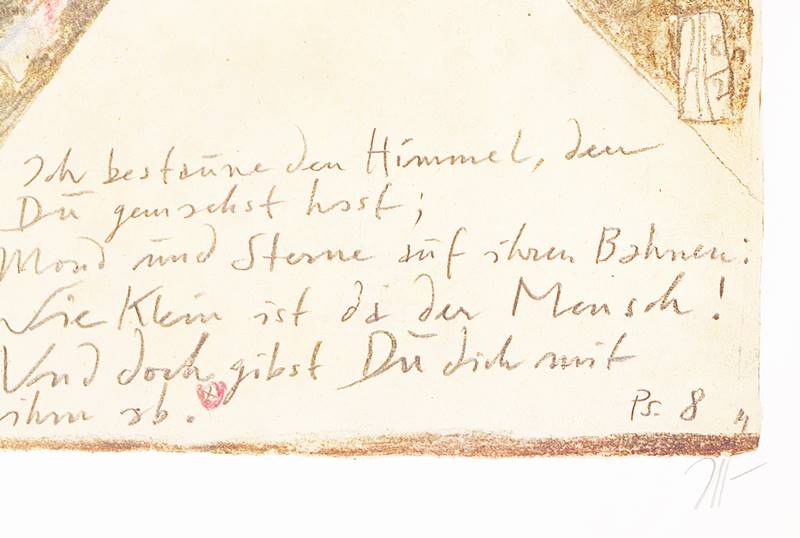 Ich bestaune den Himmel, den
Du gemachst hast;
Mond und Sterne auf ihren Bahnen:
Wie Klein ist da der Mensch!
Und doch gibst Du dich mit
ihm ab.
Ps. 8